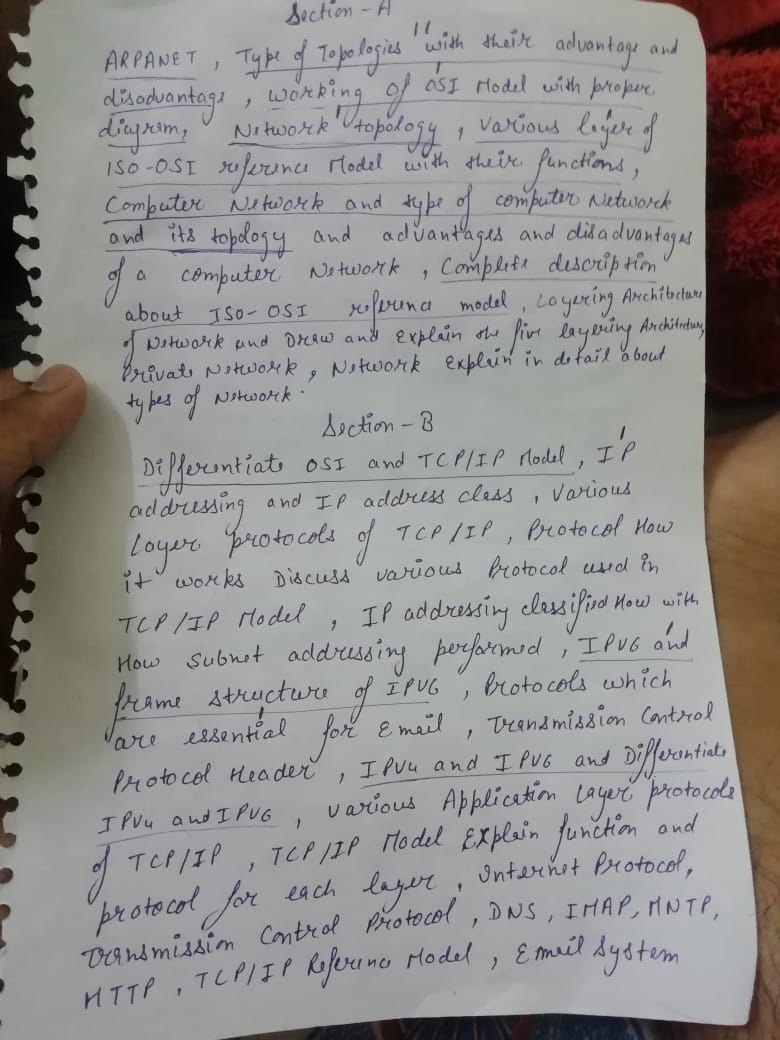 Section - A
ARPANET, Type of Topologies " with their advantage and
disadvantage, working of OSI Model with proper
diagrem, Network topology, various layer of
ISO-OSI reference Model with their functions,
Computer Network and type of computer Network
and its topology and advantages and disadvantages
of a computer Network, Complete description
about ISO-OSI reference model, Layering Architecture
of Network and Draw and Explain the five layering Architecture,
Private Network, Network Explain in detail about
types of Network.
Section - B
Differentiate OSI and TCP/IP Model, IP
addressing and IP address class, Various
Layer protocols of TCP/IP, Protocol How
it works Discuss various Protocol used in
TCP/IP Model, IP addressing classified How with
How Subnet addressing performed, IPV6 and
frame structure of IPV6, Protocols which
are essential for Email, Transmission Control
Protocol Header, IPV4 and IPV6 and Differentiate
IPV4 and IPV6, various Application Layer protocols
of TCP/IP, TCP/IP Model Explain function and
protocol for each layer, Internet Protocol,
Transmission Control Protocol, DNS, IMAP, MNTP,
HTTP, TCP/IP Reference Model, Email System